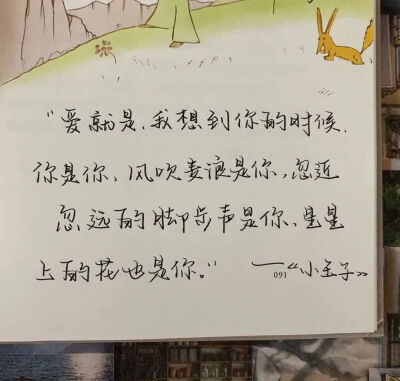 “爱就是,我想到你的时候,
你是你,风吹麦浪是你,忽近
忽远的脚步声是你,星星
上的花也是你。” —《小王子》
091